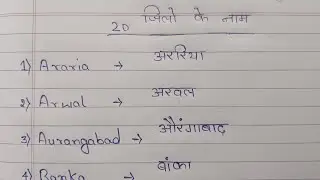 20 जिलों के नाम
1) Araria → अररिया
2) Arwal → अरवल
3) Aurangabad → औरंगाबाद
4) Banka → बांका